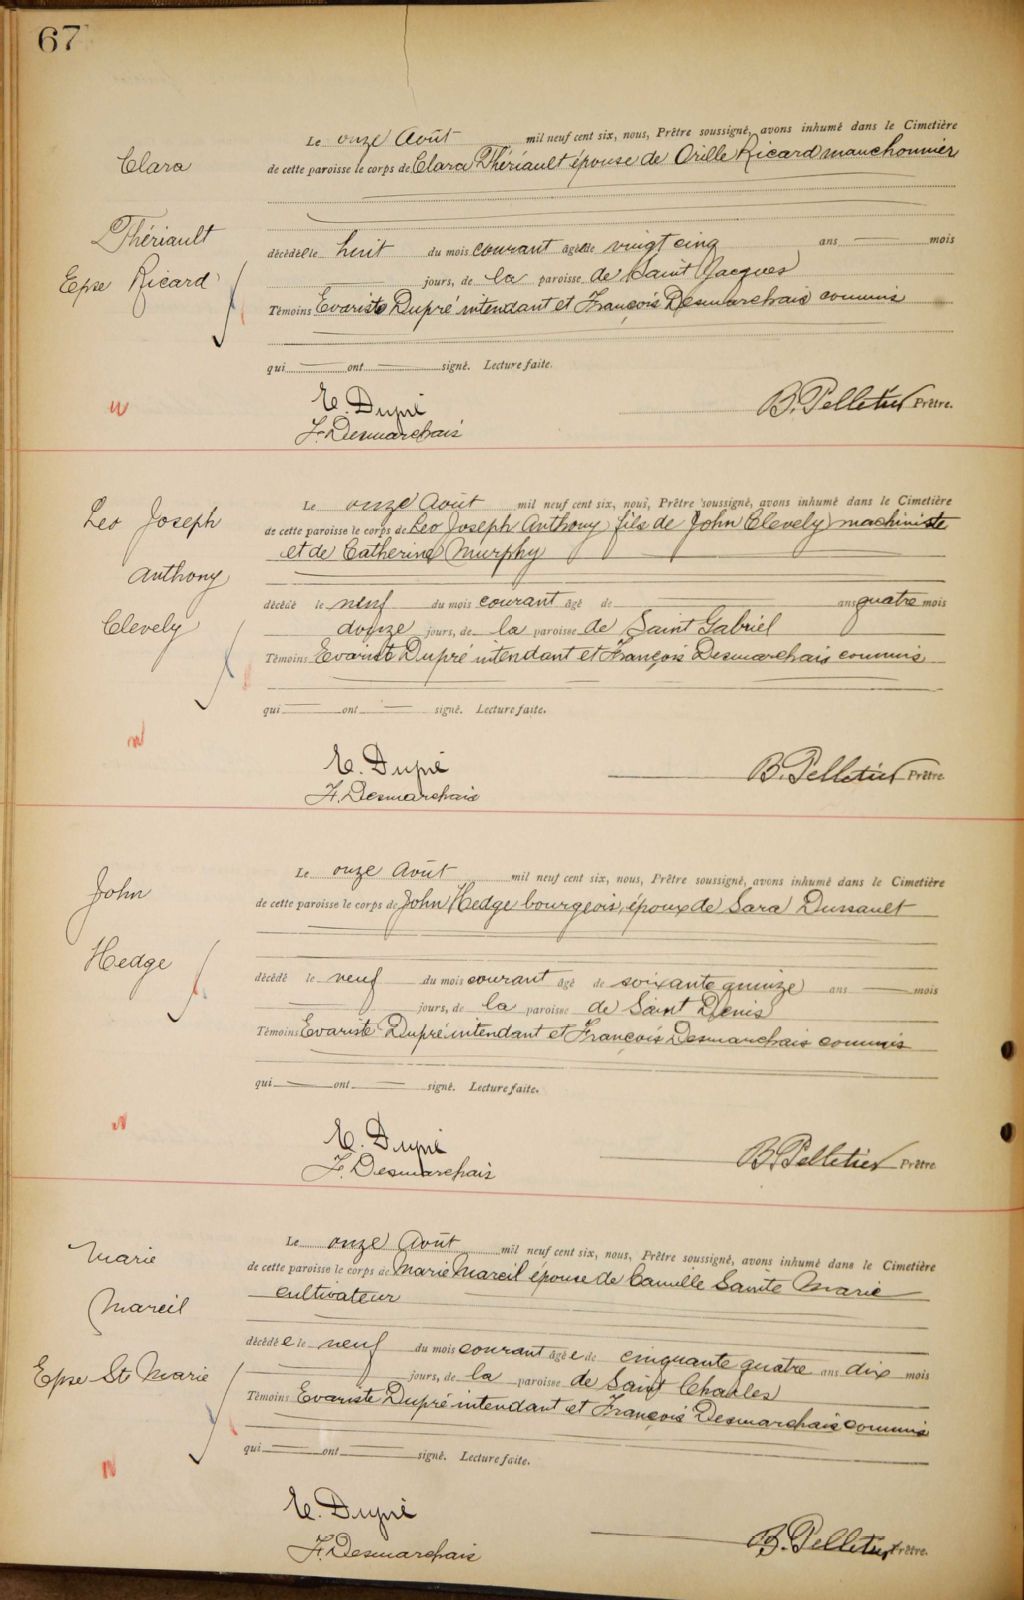 67
Le onze Août mil neuf cent six, nous, Prêtre soussigné, avons inhumé dans le Cimetière
Clara
de cette paroisse le corps de Clara Thériault épouse de Orille Ricard manchonnier
Thériault
décédée le huit du mois courant âgée de vingt cinq ans mois
Epse Ricard
jours, de la paroisse de Saint Jacques
Témoins Evariste Dupré intendant et François Desmarchais commis
qui ont signé. Lecture faite.
E. Dupré
B. Pelletier Prêtre.
F. Desmarchais
Le onze Août mil neuf cent six, nous, Prêtre soussigné, avons inhumé dans le Cimetière
Leo Joseph
de cette paroisse le corps de Leo Joseph Anthony fils de John Clevely machiniste
et de Catherine Murphy
Anthony
décédé le neuf du mois courant âgé de ans quatre mois
Clevely
douze jours, de la paroisse de Saint Gabriel
Témoins Evariste Dupré intendant et François Desmarchais commis
qui ont signé. Lecture faite.
E. Dupré
B. Pelletier Prêtre.
F. Desmarchais
Le onze Août mil neuf cent six, nous, Prêtre soussigné, avons inhumé dans le Cimetière
John
de cette paroisse le corps de John Hedge bourgeois, époux de Sara Dussault
Hedge
décédé le neuf du mois courant âgé de soixante quinze ans mois
jours, de la paroisse de Saint Denis
Témoins Evariste Dupré intendant et François Desmarchais commis
qui ont signé. Lecture faite.
E. Dupré
B. Pelletier Prêtre
F. Desmarchais
Le onze Août mil neuf cent six, nous, Prêtre soussigné, avons inhumé dans le Cimetière
Marie
de cette paroisse le corps de Marie Mareil épouse de Camille Sainte Marie
Mareil
cultivateur
décédée le neuf du mois courant âgée de cinquante quatre ans dix mois
Epse Ste Marie
jours, de la paroisse de Saint Charles
Témoins Evariste Dupré intendant et François Desmarchais commis
qui ont signé. Lecture faite.
E. Dupré
B. Pelletier Prêtre.
F. Desmarchais